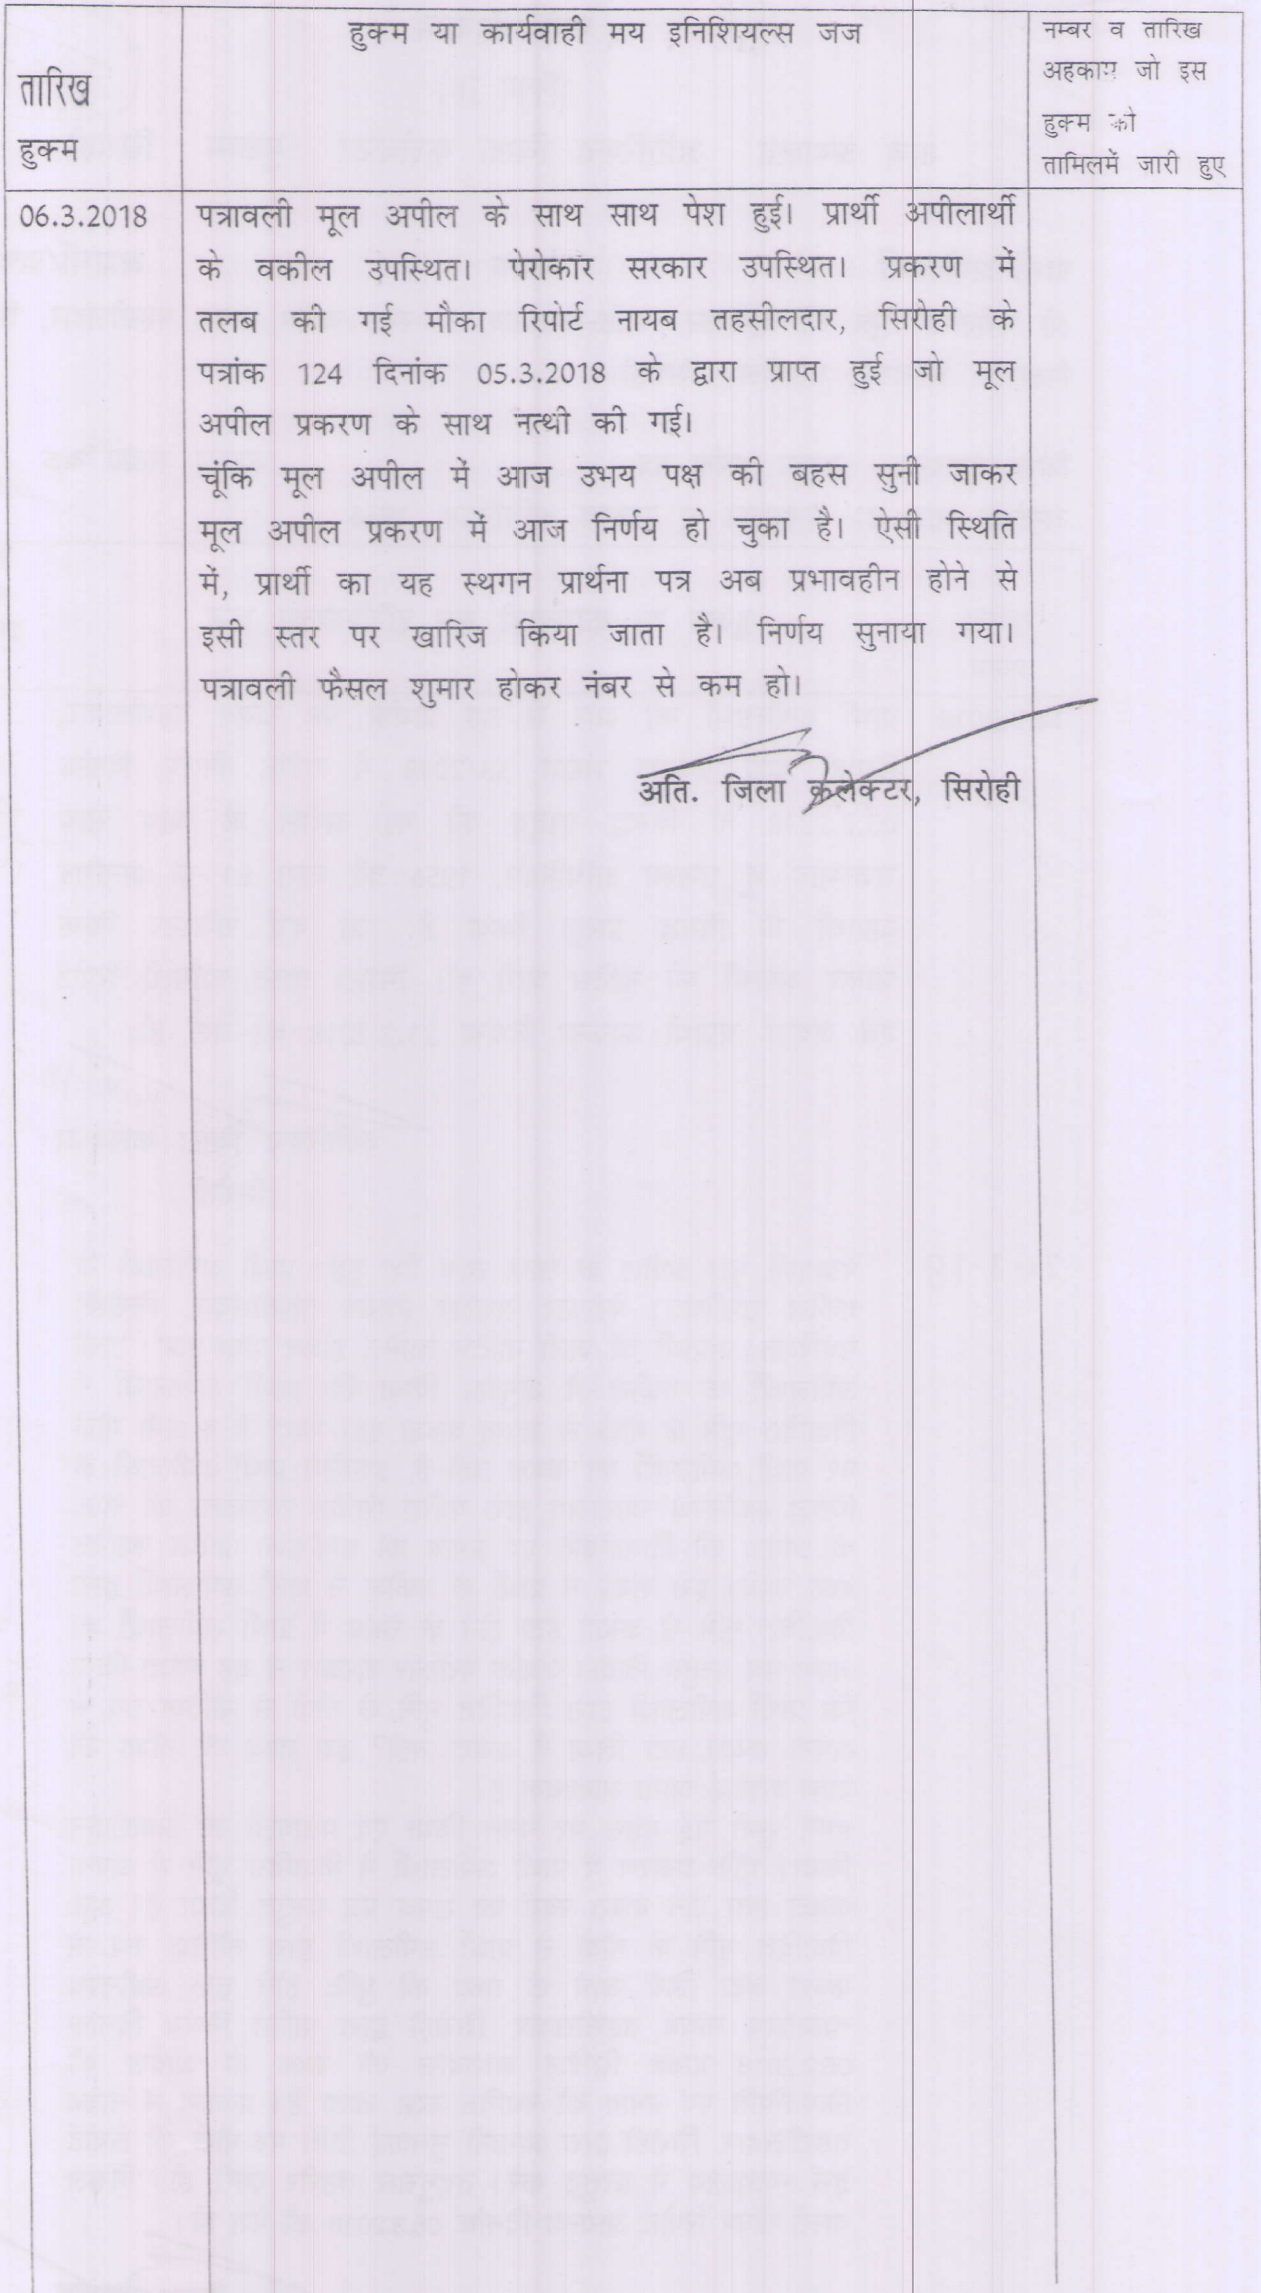 तारिख
हुक्म
हुक्म या कार्यवाही मय इनिशियल्स जज
नम्बर व तारिख
अहकाम जो इस
हुक्म को
तामिलमें जारी हुए
06.3.2018
पत्रावली मूल अपील के साथ साथ पेश हुई। प्रार्थी अपीलार्थी
के वकील उपस्थित। पेरोकार सरकार उपस्थित। प्रकरण में
तलब की गई मौका रिपोर्ट नायब तहसीलदार, सिरोही के
पत्रांक 124 दिनांक 05.3.2018 के द्वारा प्राप्त हुई जो मूल
अपील प्रकरण के साथ नत्थी की गई।
चूंकि मूल अपील में आज उभय पक्ष की बहस सुनी जाकर
मूल अपील प्रकरण में आज निर्णय हो चुका है। ऐसी स्थिति
में, प्रार्थी का यह स्थगन प्रार्थना पत्र अब प्रभावहीन होने से
इसी स्तर पर खारिज किया जाता है। निर्णय सुनाया गया।
पत्रावली फैसल शुमार होकर नंबर से कम हो।
अति. जिला कलेक्टर, सिरोही